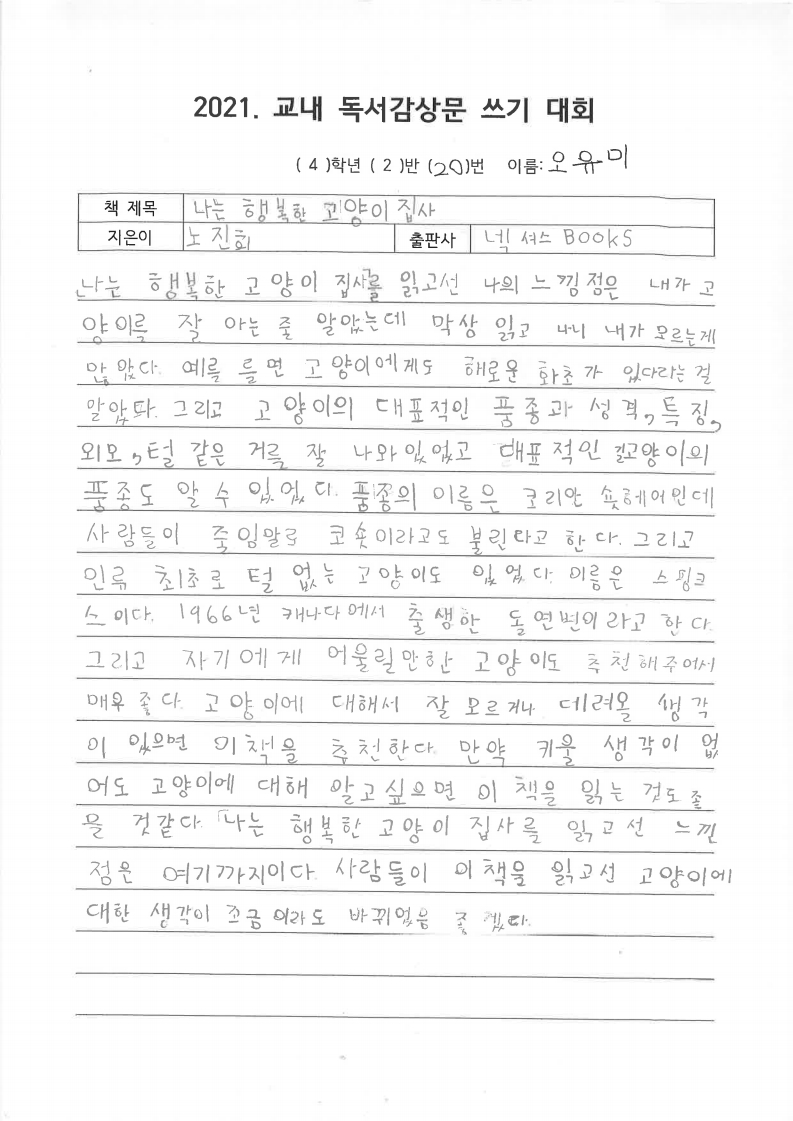 2021. 교내 독서감상문 쓰기 대회
( 4 )학년 ( 2 )반 (20)번 이름: 오유미
책 제목 나는 행복한 고양이 집사
지은이 노진희 출판사 넥셔스 BOOKS
나는 행복한 고양이 집사를 읽고선 나의 느낌점은 내가 고
양이를 잘 아는 줄 알았는데 막상 읽고 나니 내가 모르는게
많았다. 예를 들면 고양이에게도 해로운 화초가 있다라는 걸
알았다. 그리고 고양이의 대표적인 품종과 성격, 특징,
외모, 털 같은 거를 잘 나와있었고 대표적인 길고양이의
품종도 알 수 있었다. 품종의 이름은 코리안 숏헤어인데
사람들이 줄임말로 코숏이라고도 불린다고 한다. 그리고
인류 최초로 털 없는 고양이도 있었다. 이름은 스핑크
스이다. 1966년 캐나다에서 출생한 돌연변이라고 한다.
그리고 자기에게 어울릴만한 고양이도 추천해주어서
매우 좋다. 고양이에 대해서 잘 모르거나 데려올 생각
이 있으면 이책을 추천한다. 만약 키울 생각이 없
어도 고양이에 대해 알고싶으면 이 책을 읽는 것도 좋
을 것같다. 「나는 행복한 고양이 집사를 읽고선 느낀
점은 여기까지이다. 사람들이 이책을 읽고선 고양이에
대한 생각이 조금이라도 바뀌었음 좋겠다.